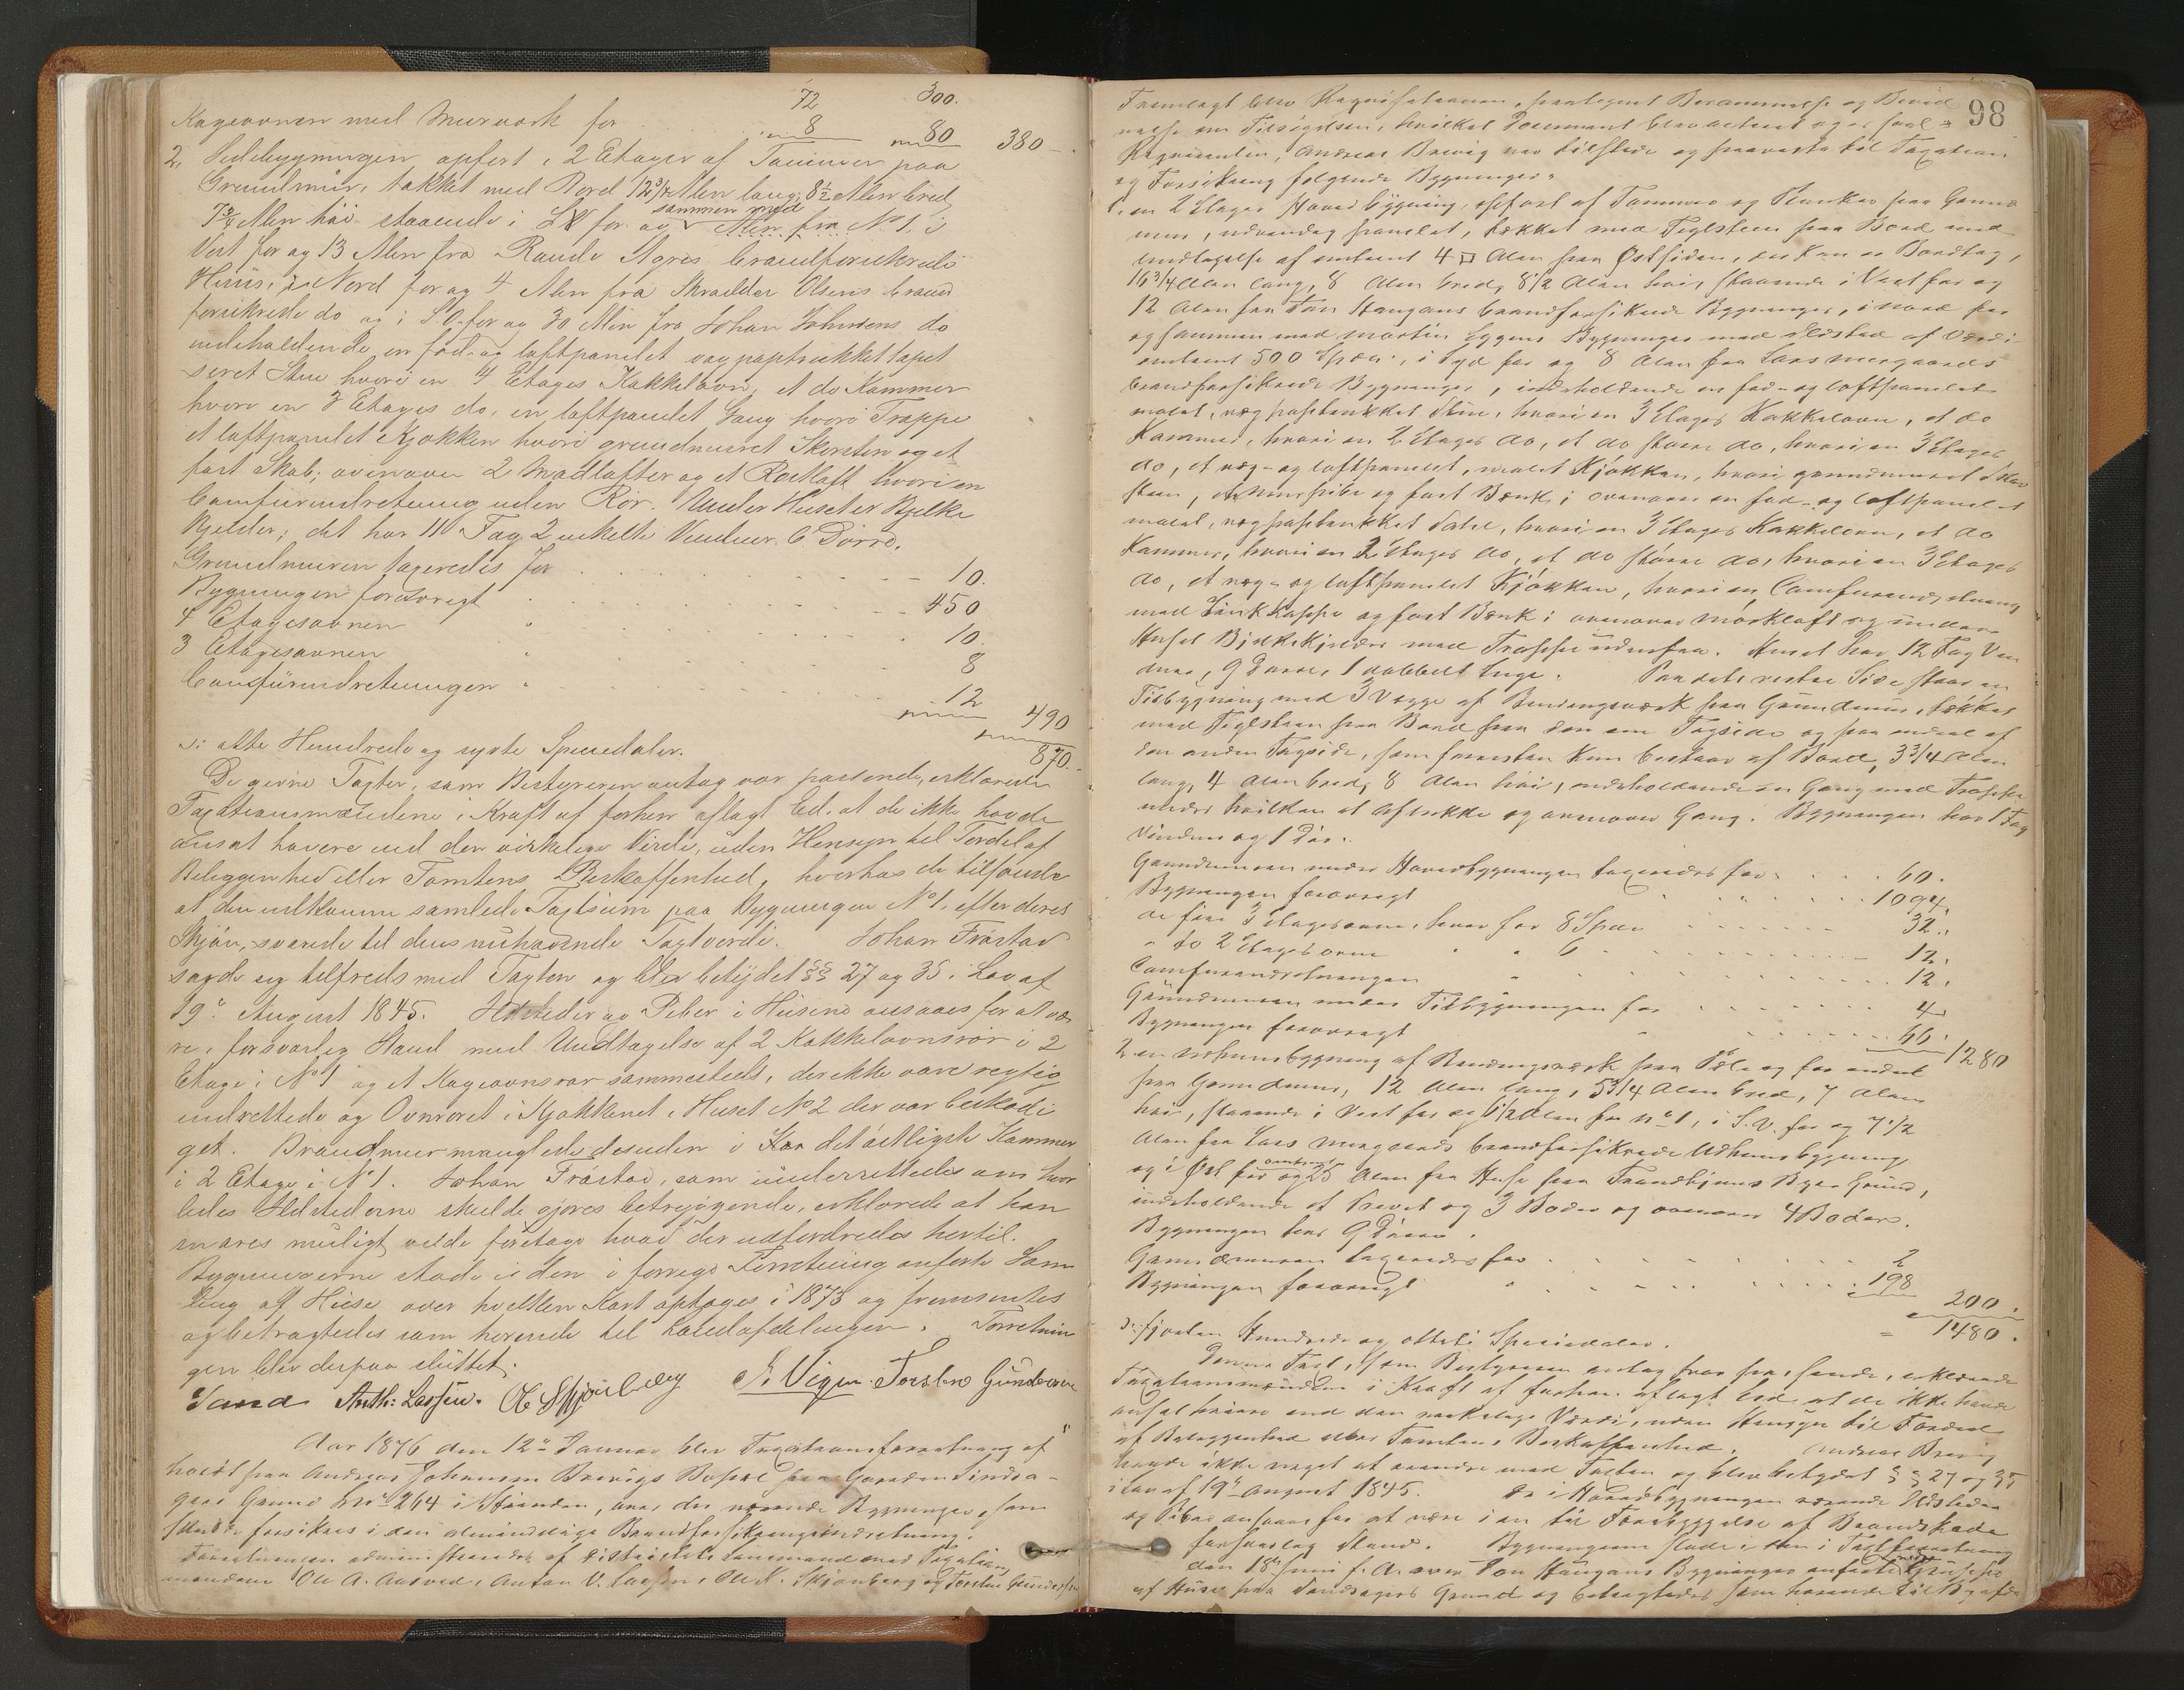 72 300.
Kageovnen med Murværk for 8 80 380
2, Sidebygningen, opført i 2 Etager af Tømmer paa
Grundmur, takket med Bord 12 3/4 Alen lang, 8 1/2 Alen bred,
7 3/4 Alen høi staaende i for og sammen med Alen fra No 1, i
Vest for og 13 Alen fra Rande Agres brandforsikrede
Huus, i Nord for og 4 Alen fra Skrædder Olsens brand
forsikrede do og i S.O. for og 30 Alen fra Johan Johnsens do
indeholdende en fod- og loftpanelet vægpaptrukket tapet
seret Stue hvori en 4 Etages Kakkelovn, et do Kammer
hvori en 3 Etages do, en loftpanelet Gang hvori Trappe
et loftpanelet Kjøkken hvori grundmuret Skorsten og et
fast Skab; ovenover 2 Mødtlofter og et Rocloft hvori en
Comfurindretning uden Rør. Under Huset er Bjelke
Kjelder; det har 11 Fag 2 enkelte Vinduer 6 Dørre.
Grundmuren taxeredes for 10.
Bygningen forøvrigt " 450
4 Etagesovnen " 10.
3 Etagesovnen " 8
Comfurindretningen " 12
490
870.
ɔ: otte Hundrede og sytti Speciedaler.
De givne Taxter, som Bestyreren antog var passende, erklærede
Taxationsmændene i Kraft af forhen aflagt Ed, at de ikke havde
ansat høiere end den virkelige Værdi, uden Hensyn til Fordel af
Beliggenhed eller Tomtens Beskaffenhed, hvorhos de tilføiede
at den udkomne samlede Taxtsum paa Bygningen No 1, efter deres
Skjøn, svarede til dens nuhavende Taxtværdi. Johan Frøstad
sagde sig tilfreds med Taxten og blev betydet §§ 27 og 35 i Lov af
19de August 1845. Ildsteder og Piber i Husene ansaaes for at væ
re i forsvarlig Stand med Undtagelse af 2 Kakkelovnsrør i 2
Etage i No 1 og et Kageovnsrør sammesteds, der ikke vare rigtig
indrettede og Ovnrøret i Kjøkkenet i Huset No 2 der var beskadi
get. Brandmur mangledes desuden i det østligste Kammer
i 2 Etage i No 1. Johan Frøstad, som underrettedes om hvor
ledes Ildstederne skulde gjøres betryggende, erklærede at han
snares muligt vilde foretage hvad der udfordredes hertil.
Bygningerne stode i den i forrige Forretning anførte Sam
ling af Huse over hvilken Kart optages i 1873 og fremsendtes
og betragtedes som hørende til Landafdelingen. Forretnin
gen blev derpaa sluttet.
Sand Anth: Lassen. O. Skjønberg S. Vigen Torsten Gundersen
Aar 1876 den 12te Januar blev Taxationsforretning af
holdt paa Andreas Johansen Brevigs Bopæl paa Gaarden Sindsa-
geres Grund Lno 264 i Strinden, over der værende Bygninger, som
skulde forsikres i den almindelige Brandforsikringsindretning.
Forretningen administreredes af Districtets Lensmand med Taxations
mændene Ole A. Aasved, Anton V. Lassen, Ole K. Skjønberg og Torsten Gundersen
98
Fremlagt blev Requisitionen, paategnet Berammelse og Bevid
nelse om Tilsigelsen, hvilket Document blev
Requirenten, Andreas Brevig var tilstede og paaviste til Taxation
og Forsikring følgende Bygninger:
1. en 2 Etages Hovedbygning, opført af Tømmer og Planker paa Grund
mur, udvendig panelet, tækket med Teglsteen paa Bord med
undtagelse af omtrent 4 □ Alen paa Østsiden, der kun er Bordtag,
16 3/4 Alen lang, 8 Alen bred, 8 1/2 Alen høi, staaende i Vest for og
12 Alen fra Tøn Haugans brandforsikrede Bygninger, i Nord for
og sammen med Martin Eggens Bygninger med Ildsted af Værdi
omtrent 500 Spdlr., i Syd for og 8 Alen fra Lars Moxgaards
brandforsikrede Bygninger, indeholdende en fod- og loftpanelet
malet, vægpaptrukket Stue, hvori en 3 Etages Kakkelovn, et do
Kammer, hvori en 2 Etages do, et do større do, hvori en 3 Etages
do, et væg- og loftpanelet, malet Kjøkken, hvori grundmuret Skor
sten, og fast Bænk; ovenover en fod- og loftpanelet
malet, vægpaptrukket Sahl, hvori en 3 Etages Kakkelovn, et do
Kammer, hvori en 2 Etages do, et do større do, hvori en 3 Etages
do, et væg- og loftpanelet Kjøkken, hvori en Comfurindretning
med Zinkkappe og fast Bænk; ovenover mørkloft og under
Huset Bjelkekjelder med Trappe udenfra. Huset har 12 Fag Vin
duer, 9 Dørre, 1 dobbelt Luge. Paa dets vestre Side staar en
Tilbygning med 3 Vægge af Bindingsværk paa Grundmur, tækket
med Teglsteen paa Bord paa den ene Tagside og paa endeel af
den anden Tagside, som forresten kun bestaar af Bord, 3 3/4 Alen
lang, 4 Alen bred, 8 Alen høi, indeholdende en Gang med Trappe
under hvilken et Aflukke og ovenover Gang. Bygningen har 1 Fag
Vinduer og 1 Dør.
Grundmuren under Hovedbygningen taxeredes for 60.
Bygningen forøvrigt " 1094.
de fire 3 Etagesovne, hver for 8 Spdlr 32.
" to 2 Etagesovne " " 6 12.
Comfurindretningen " 12.
Grundmuren under Tilbygningen for 4
Bygningen forøvrigt " 66. 1280
2. en Udhuusbygning af Bindingsværk paa Pæle og for endeel
paa Grundmur, 12 Alen lang, 5 3/4 Alen bred, 7 Alen
høi, staaende i Vest for og 6 1/2 Alen fra No 1, i S.V. for og 7 1/2
Alen fra Lars Moxgaards brandforsikrede Udhuusbygning
og i Øst for og omtrent 25 Alen fra Huse paa Trondhjems Byes Grund,
indeholdende et Privet og 3 Boder og ovenover 4 Boder.
Bygningen har 9 Dørre.
Grundmuren taxeredes for 2
Bygningen forøvrigt " 198
200.
= 1480.
ɔ: fjorten Hundrede og otteti Speciedaler.
Denne Taxt, som Bestyreren antog for passende, erklærede
Taxationsmændene i Kraft af forhen aflagt Eed at de ikke havde
ansat høiere end den virkelige Værdi, uden Hensyn til Fordeel
af Beliggenhed eller Tomtens Beskaffenhed. Andreas Brevig
havde ikke noget at erindre mod Taxten og blev betydet §§ 27 og 35
i Lov af 19de August 1845. De i Hovedbygningen værende Ildsteder
og Piber ansaaes for at være i en til Forebyggelse af Brandskade
forsvarlig Stand. Bygningerne stode i den i Taxtforretning
den 18de Juni f. A. over Tøn Haugans Bygninger anførte Gruppe
af Huse paa Sindsageres Grund og betragtedes som hørende til Byafde